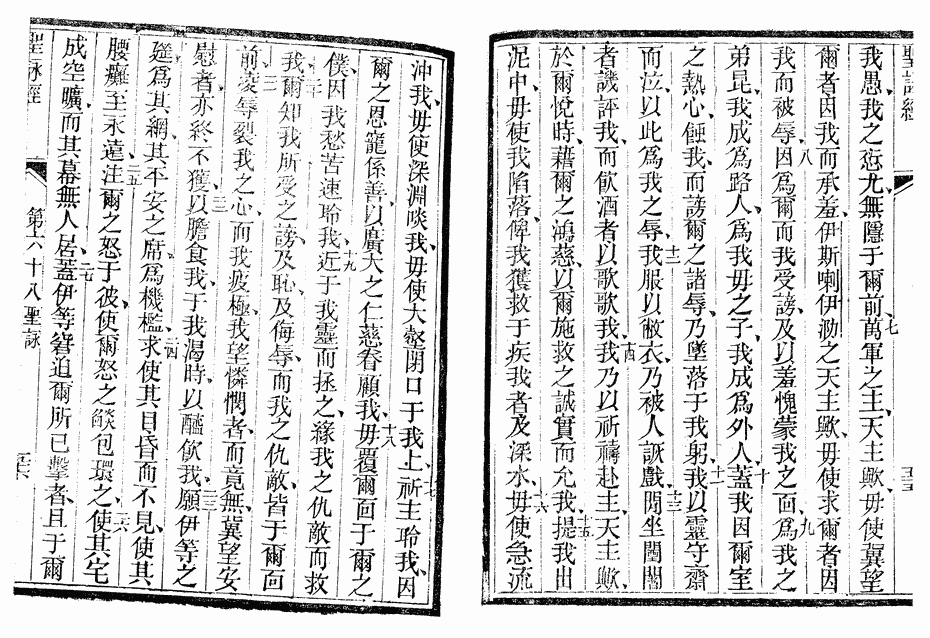 聖詠經
我愚、我之愆尤、無隱于爾前、七萬軍之主、天主歟、毋使冀望
爾者因我而承羞、伊斯喇伊泐之天主歟、毋使求爾者因
我而被辱、八因爲爾而我受謗、及以羞愧蒙我之面、九爲我之
弟昆、我成爲路人、爲我毋之子、我成爲外人、十蓋我因爾室
之熱心、蝕我、而謗爾之諸辱、乃墜落于我躬、十一我以靈守齋
而泣、以此爲我之辱、十二我服以敝衣、乃被人詼戲、十三閒坐閭閻
者譏評我、而飮酒者以歌歌我、十四我乃以祈禱赴主、天主歟、
於爾悅時、藉爾之鴻慈、以爾施救之誠實而允我、十五提我出
泥中、毋使我陷落、俾我獲救于疾我者、及深水、十六毋使急流
沖我、毋使深淵啖我、毋使大壑閉口于我上、十七祈主聆我、因
爾之恩寵係善、以廣大之仁慈眷顧我、十八毋覆爾面于爾之
僕、因我愁苦、速聆我、十九近于我靈而拯之、緣我之仇敵而救
我、二十爾知我所受之謗、及恥、及侮辱、而我之仇敵、皆于爾面
前、二一凌辱裂我之心、而我疲極、我望憐憫者、而竟無、冀望安
慰者、亦終不獲、二二以膽食我、于我渴時、以醯飮我、二三願伊等之
筵爲其網、其平安之席、爲機檻、二四求使其目昏而不見、使其
腰癱至永遠、二五注爾之怒于彼、使爾怒之燄包環之、二六使其宅
成空曠、而其幕無人居、二七蓋伊等窘迫爾所已擊者、且于爾
聖詠經
第六十八聖詠